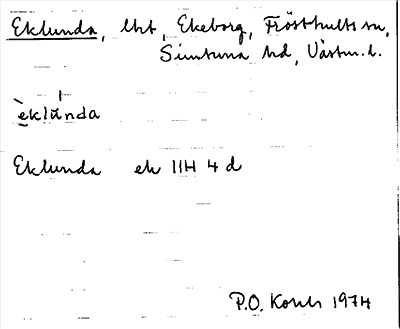 Eklunda, lht, Ekeborg, Frösthults sn,
Simtuna hd, Västm. l.
èklúnda
Eklunda ek IIH 4 d
P.O. 1974